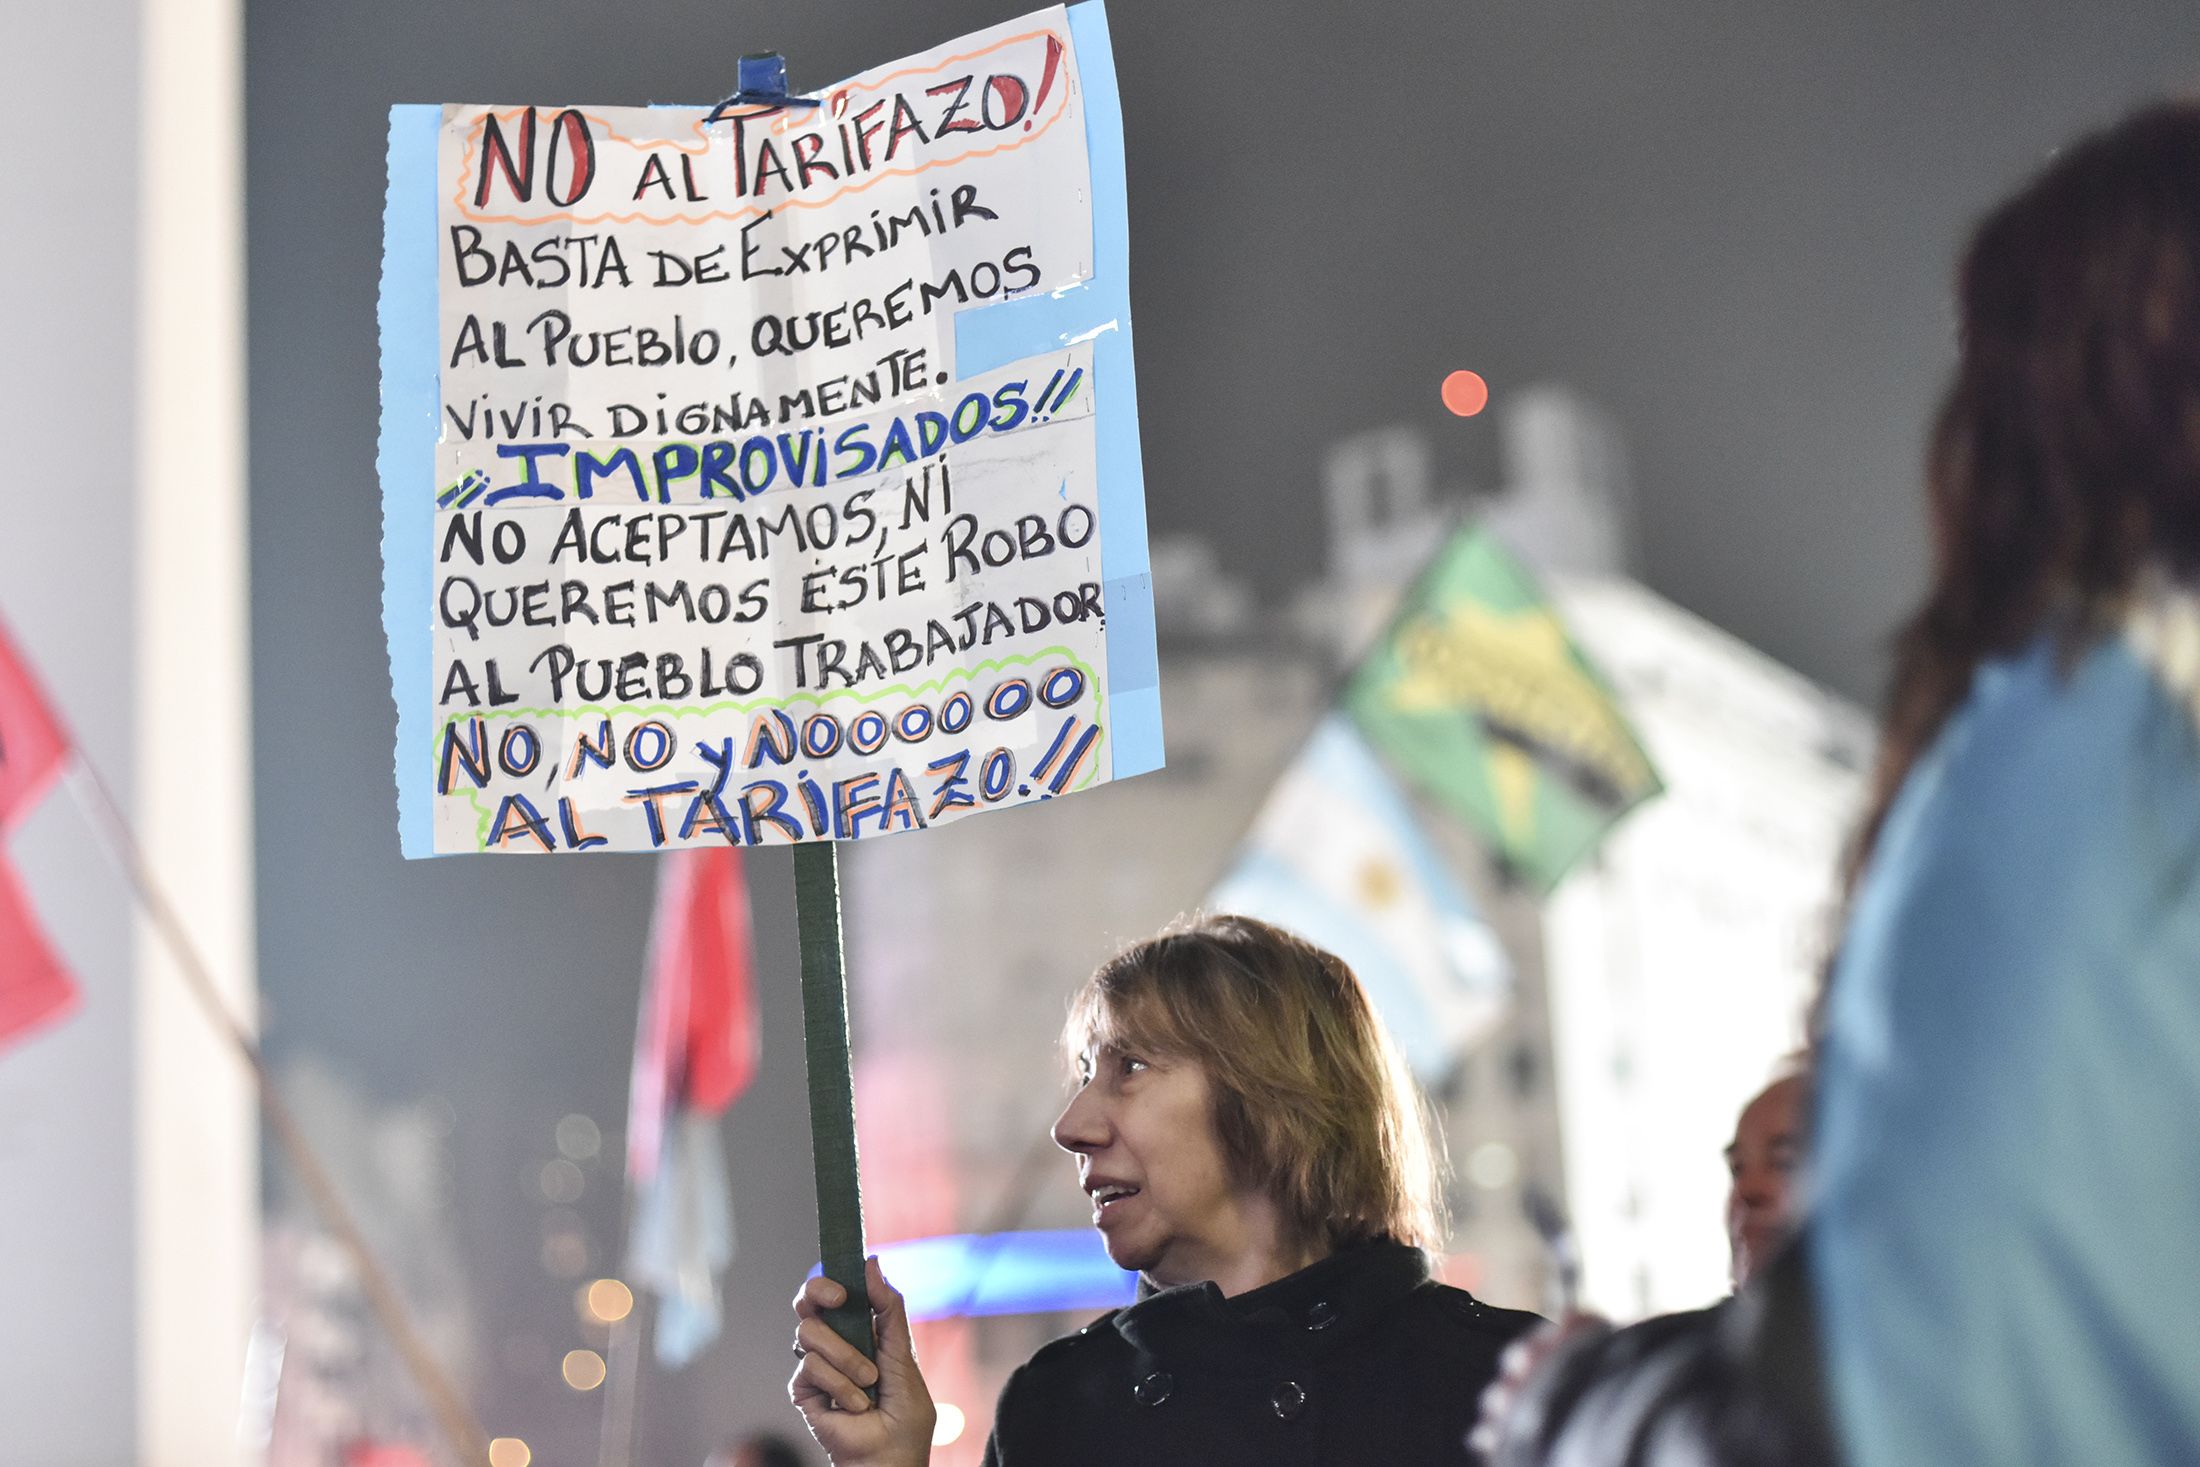 NO AL TARIFAZO!
BASTA DE EXPRIMIR
AL PUEBLO, QUEREMOS
VIVIR DIGNAMENTE.
¡¡IMPROVISADOS!!
NO ACEPTAMOS, NI
QUEREMOS ESTE ROBO
AL PUEBLO TRABAJADOR.
NO, NO y NOOOOOOO
AL TARIFAZO.!!